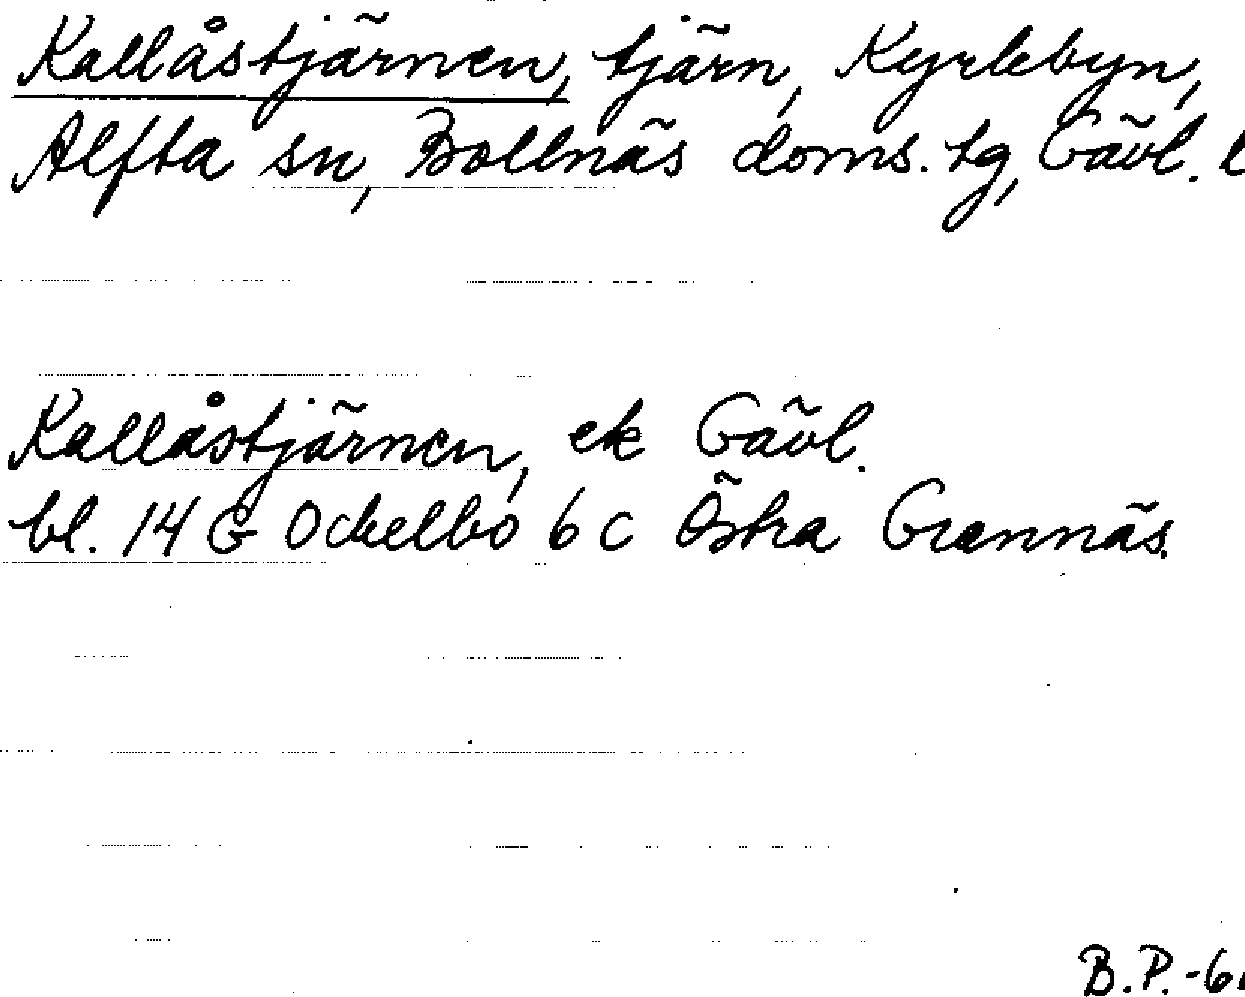 Kallåstjärnen, tjärn, Kyrkbyn,
Alfta sn, Bollnäs doms. tg, Gävl. l
Kallåstjärnen, ek Gävl.
bl. 14 G Ockelbo 6 c Östra Grannäs.
B.P.-6